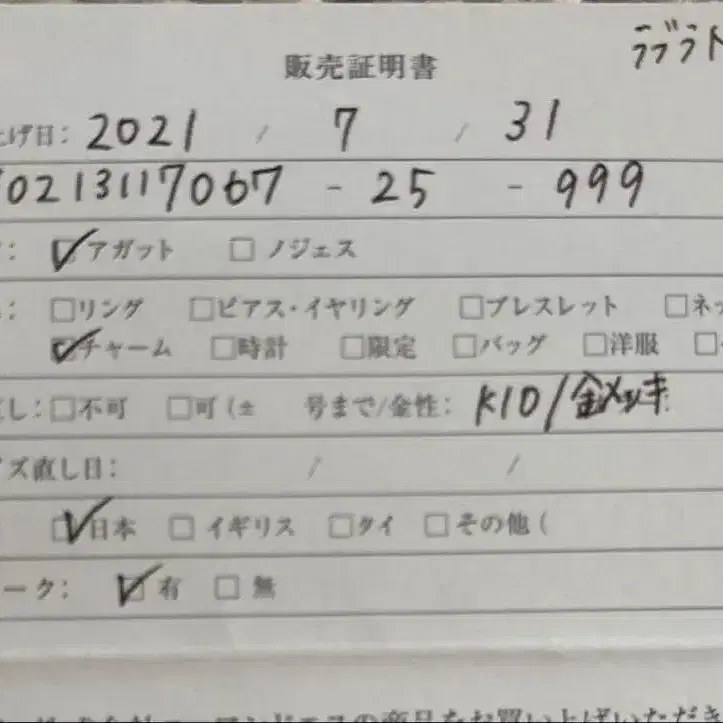 ラブラト
販売証明書
上げ日: 2021 / 7 / 31
0213117067 - 25 - 999
: ☑アガット □ノジェス
: □リング □ピアス・イヤリング □ブレスレット □ネッ
☑チャーム □時計 □限定 □バッグ □洋服 □
直し: □不可 □可 (± 号まで/金性: K10/金メッキ
イズ直し日: / /
☑日本 □イギリス □タイ □その他 (
ーク: ☑有 □無
の商品をお買い上げいただき